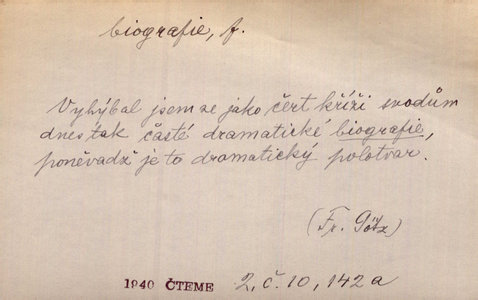 biografie, f.
Vyhýbal jsem se jako čert kříži svodům
dnes tak časté dramatické biografie,
poněvadž je to dramatický polotvar.
(Fr. Götz)
1940 ČTEME 2, č. 10, 142a